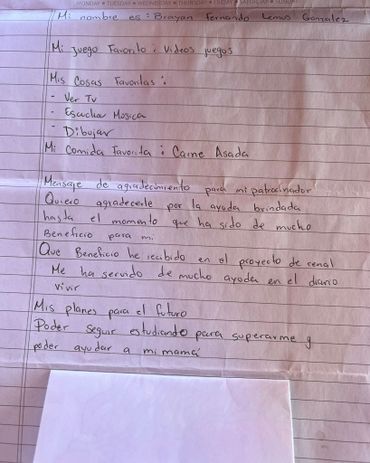 MONDAY ★ TUESDAY ★ WEDNESDAY ★ THURSDAY ★ FRIDAY ★ SATURDAY ★ SUNDAY
Mi nombre es: Brayan Fernando Lemus Gonzalez
Mi Juego Favorito: Videos juegos
Mis Cosas Favoritas:
- Ver Tv
- Escuchar Musica
- Dibujar
Mi Comida Favorita: Carne Asada
Mensaje de agradecimiento para mi patrocinador
Quiero agradecerle por la ayuda brindada
hasta el momento que ha sido de mucho
Beneficio para mi.
Que Beneficio he recibido en el proyecto de renal
Me ha servido de mucho ayuda en el diario
vivir
Mis planes para el futuro
Poder seguir estudiando para superarme y
poder ayudar a mi mamá